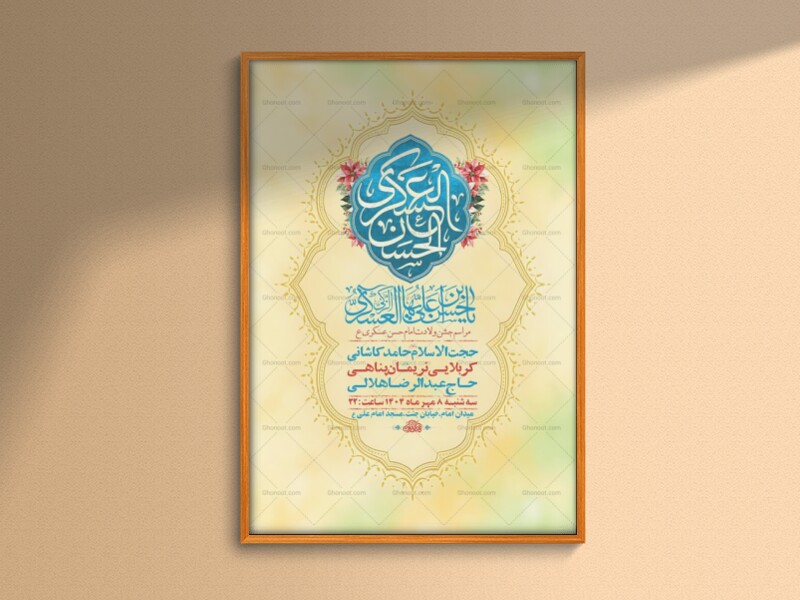 الحسن العسکری
یا حسن بن علی ایها الزکی العسکری
مراسم جشن ولادت امام حسن عسکری ع
حجت الاسلام حامد کاشانی
کربلایی نریمان پناهی
حاج عبدالرضا هلالی
سه شنبه ۸ مهر ماه ۱۴۰۴ ساعت: ۲۴
میدان امام، خیابان جنت، مسجد امام علی ع
Ghonoot.com